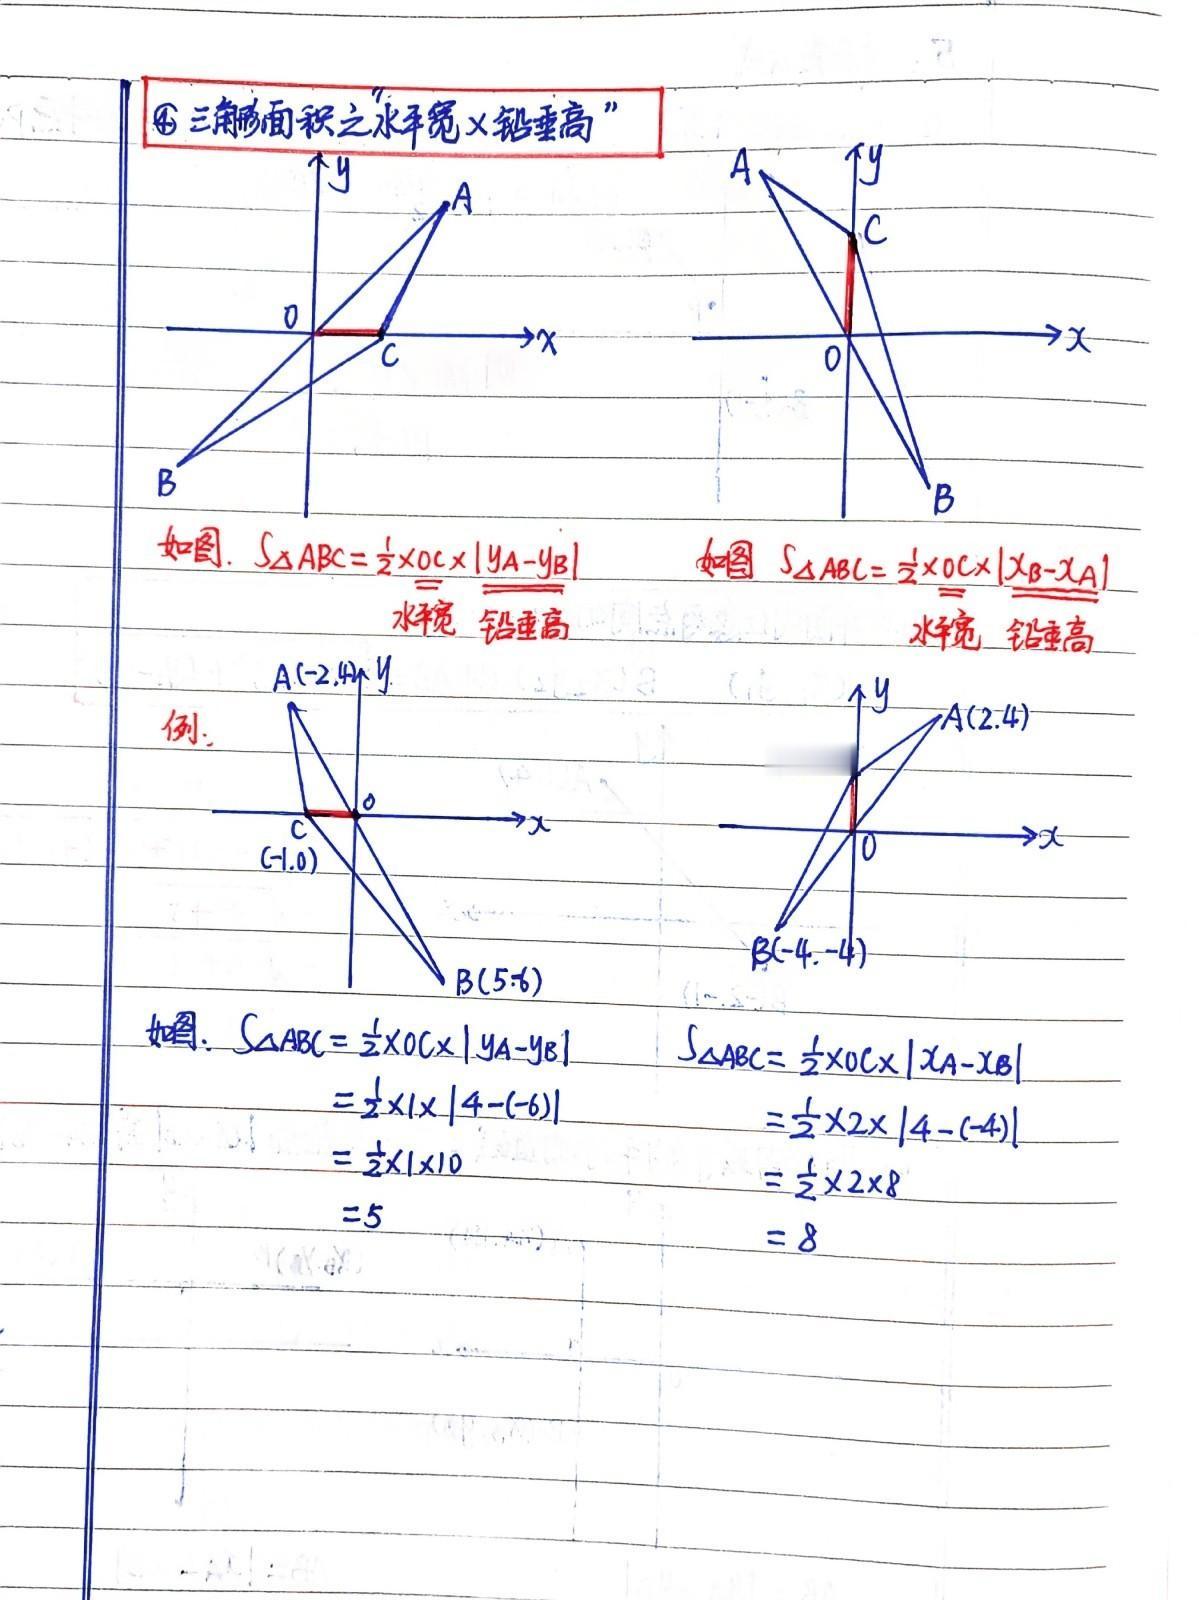 ④ 三角形面积之"水平宽×铅垂高"
y
A
O
C
x
B
A
y
C
O
x
B
如图. S△ABC=½×OC×|yA-yB|
水平宽 铅垂高
如图 S△ABC=½×OC×|xB-xA|
水平宽 铅垂高
例.
A(-2.4)
y
C
(-1.0)
O
x
B(5.-6)
y
A(2.4)
O
x
B(-4.-4)
如图. S△ABC=½×OC×|yA-yB|
=½×1×|4-(-6)|
=½×1×10
=5
S△ABC=½×OC×|xA-xB|
=½×2×|4-(-4)|
=½×2×8
=8